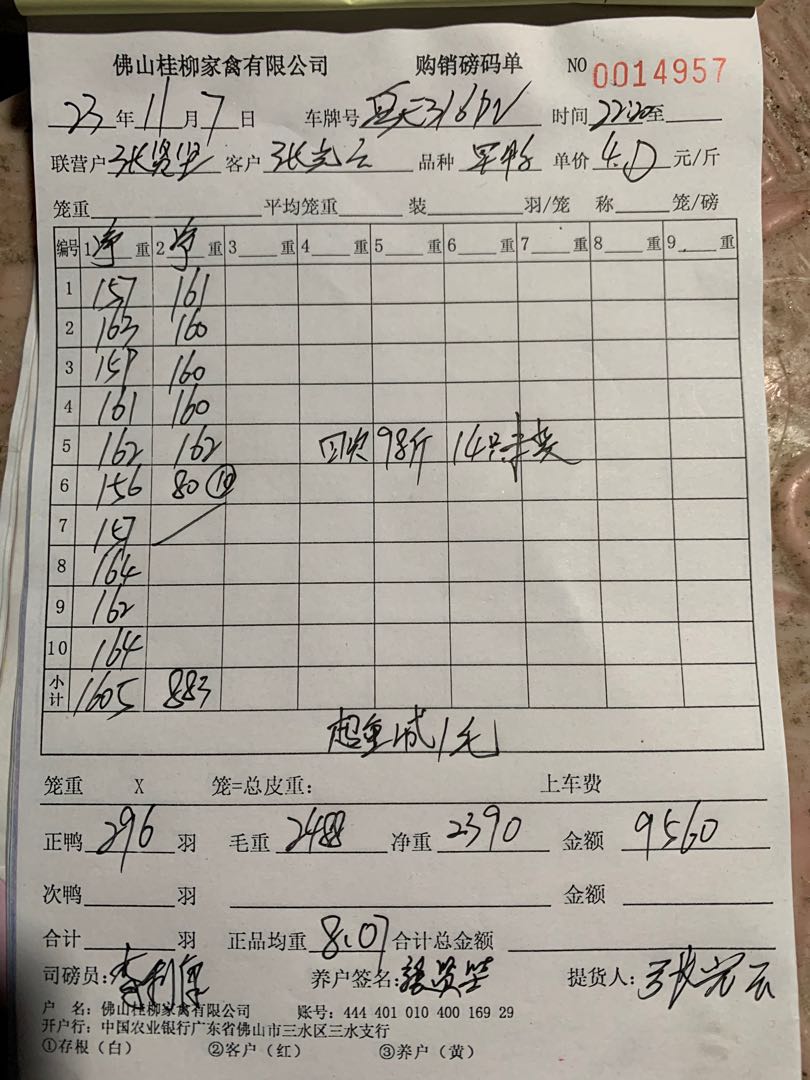 佛山桂柳家禽有限公司 购销磅码单 NO 0014957
23年11月7日 车牌号 时间22:20至
联营户张贤坚 客户 品种 单价4.0元/斤
笼重 平均笼重 装 羽/笼 称 笼/磅
编号 1净重 2净重 3 重 4 重 5 重 6 重 7 重 8 重 9 重
1 157 161
2 163 160
3 159 160
4 161 160
5 162 162 98斤 14只
6 156 80 ⑩
7 157
8 164
9 162
10 164
小计 1605 883
超重减1毛
笼重 X 笼=总皮重: 上车费
正鸭296羽 毛重2488 净重2390 金额9560
次鸭 羽 金额
合计 羽 正品均重8.07合计总金额
司磅员: 养户签名:张贤坚 提货人:
户 名: 佛山桂柳家禽有限公司 账号: 444 401 010 400 169 29
开户行: 中国农业银行广东省佛山市三水区三水支行
①存根（白） ②客户（红） ③养户（黄）